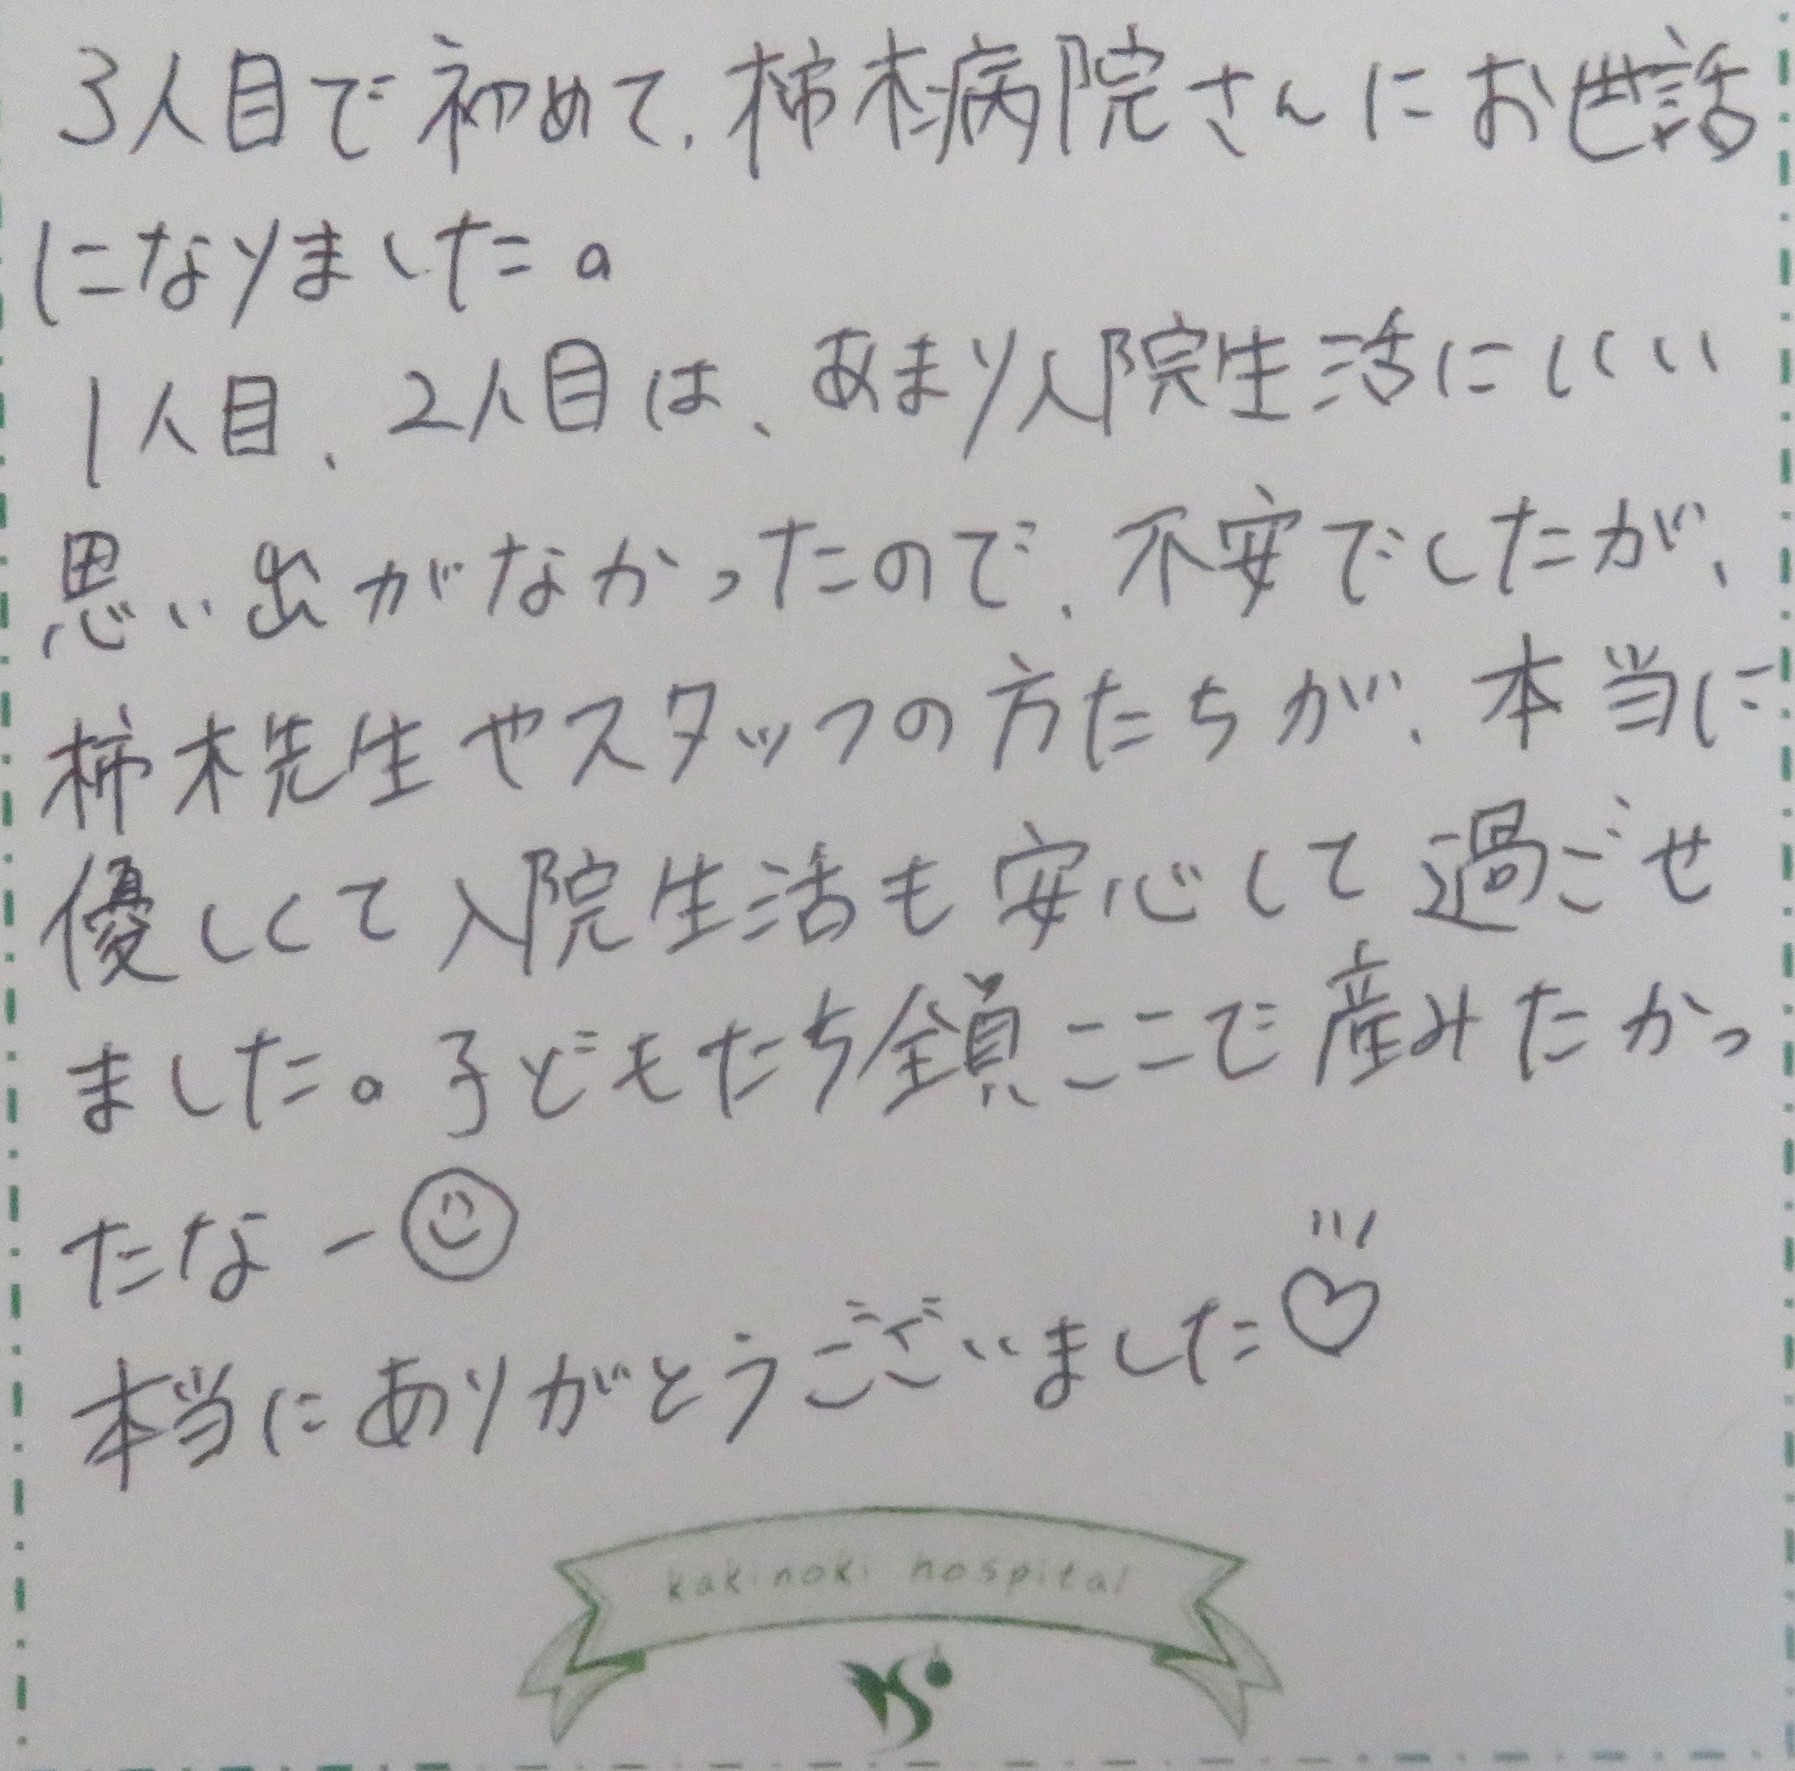 3人目で初めて、柿木病院さんにお世話
になりました。
1人目、2人目は、あまり入院生活にいい
思い出がなかったので、不安でしたが、
柿木先生やスタッフの方たちが、本当に
優しくて入院生活も安心して過ごせ
ました。子どもたち全員ここで産みたかっ
たなー
本当にありがとうございました♡
kakinoki hospital